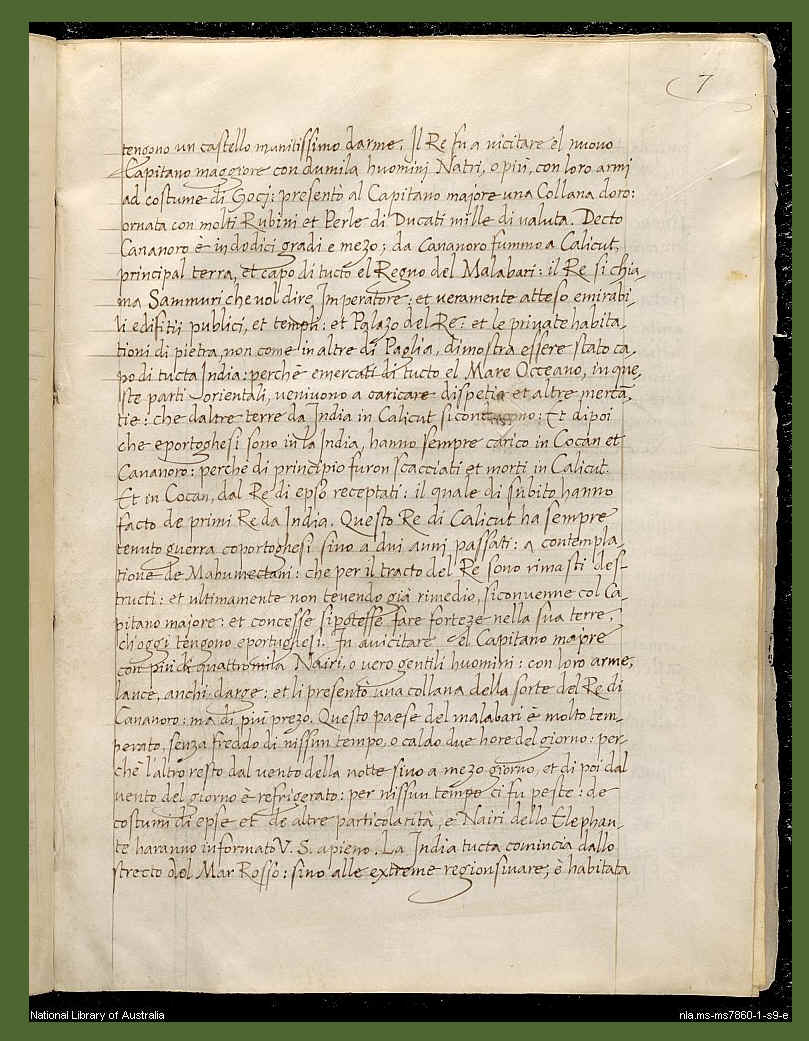 7
tengono un castello munitissimo darme. Il Re fu a vicitare el nuovo
Capitano maggiore con dumila huomini Natri, o piu, con loro armi
ad costume di Gocj: presentò al Capitano majore una Collana doro:
ornata con molti Rubini et Perle di Ducati mille di valuta. Decto
Cananoro è in dodici gradi e mezo; da Cananoro fummo a Calicut,
principal terra, et capo di tucto el Regno del Malabari: il Re si chia-
ma Sammuri che vol dire Imperatore: et veramente atteso emirabi-
li edifitij publici, et templi: et Palazo del Re: et le private habita-
tioni di pietra, non come in altre di Paglia, dimostra essere stato ca-
po di tucta India: perchè emercati di tucto el Mare Occeano, in que-
ste parti orientali, venivono a caricare dispetie et altre mercā-
tie: che daltre terre da India in Calicut si: Et dipoi
che eportoghesi sono in la India, hanno sempre carico in Cocan et
Cananoro: perche di principio furon scacciati et morti in Calicut.
Et in Cocan, dal Re di epso receptati: il quale di subito hanno
facto de primi Re da India. Questo Re di Calicut ha sempre
tenuto guerra coportoghesi sino a dui anni passati: a contempla-
tione de Mahumectani: che per il tracto del Re sono rimasti des-
tructi: et ultimamente non tevendo già rimedio, siconvenne col Ca-
pitano majore: et concesse sipotesse fare forteze nella sua terre,
ch'oggi tengono eportughesi. In avicitare el Capitano majore
con piu di quattromila Nairi, o vero gentili huomini: con loro arme,
lance, anchi darge: et li presentò una collana della sorte del Re di
Cananoro: ma di piu prezo. Questo paese del malabari è molto tem-
perato, senza freddo di nissun tempo, o caldo due hore del giorno: per-
chè l'altro resto dal vento della notte sino a mezo giorno, et di poi dal
vento del giorno è refrigerato: per nissun tempo ci fu peste: de
costumi di epse et de altre particolarità, e Nairi dello Elephan-
te haranno informato V. S. apieno. La India tucta comincia dallo
strecto del Mar Rosso: sino alle extreme regionsivare, è habitata
National Library of Australia
nla.ms-ms7860-1-s9-e